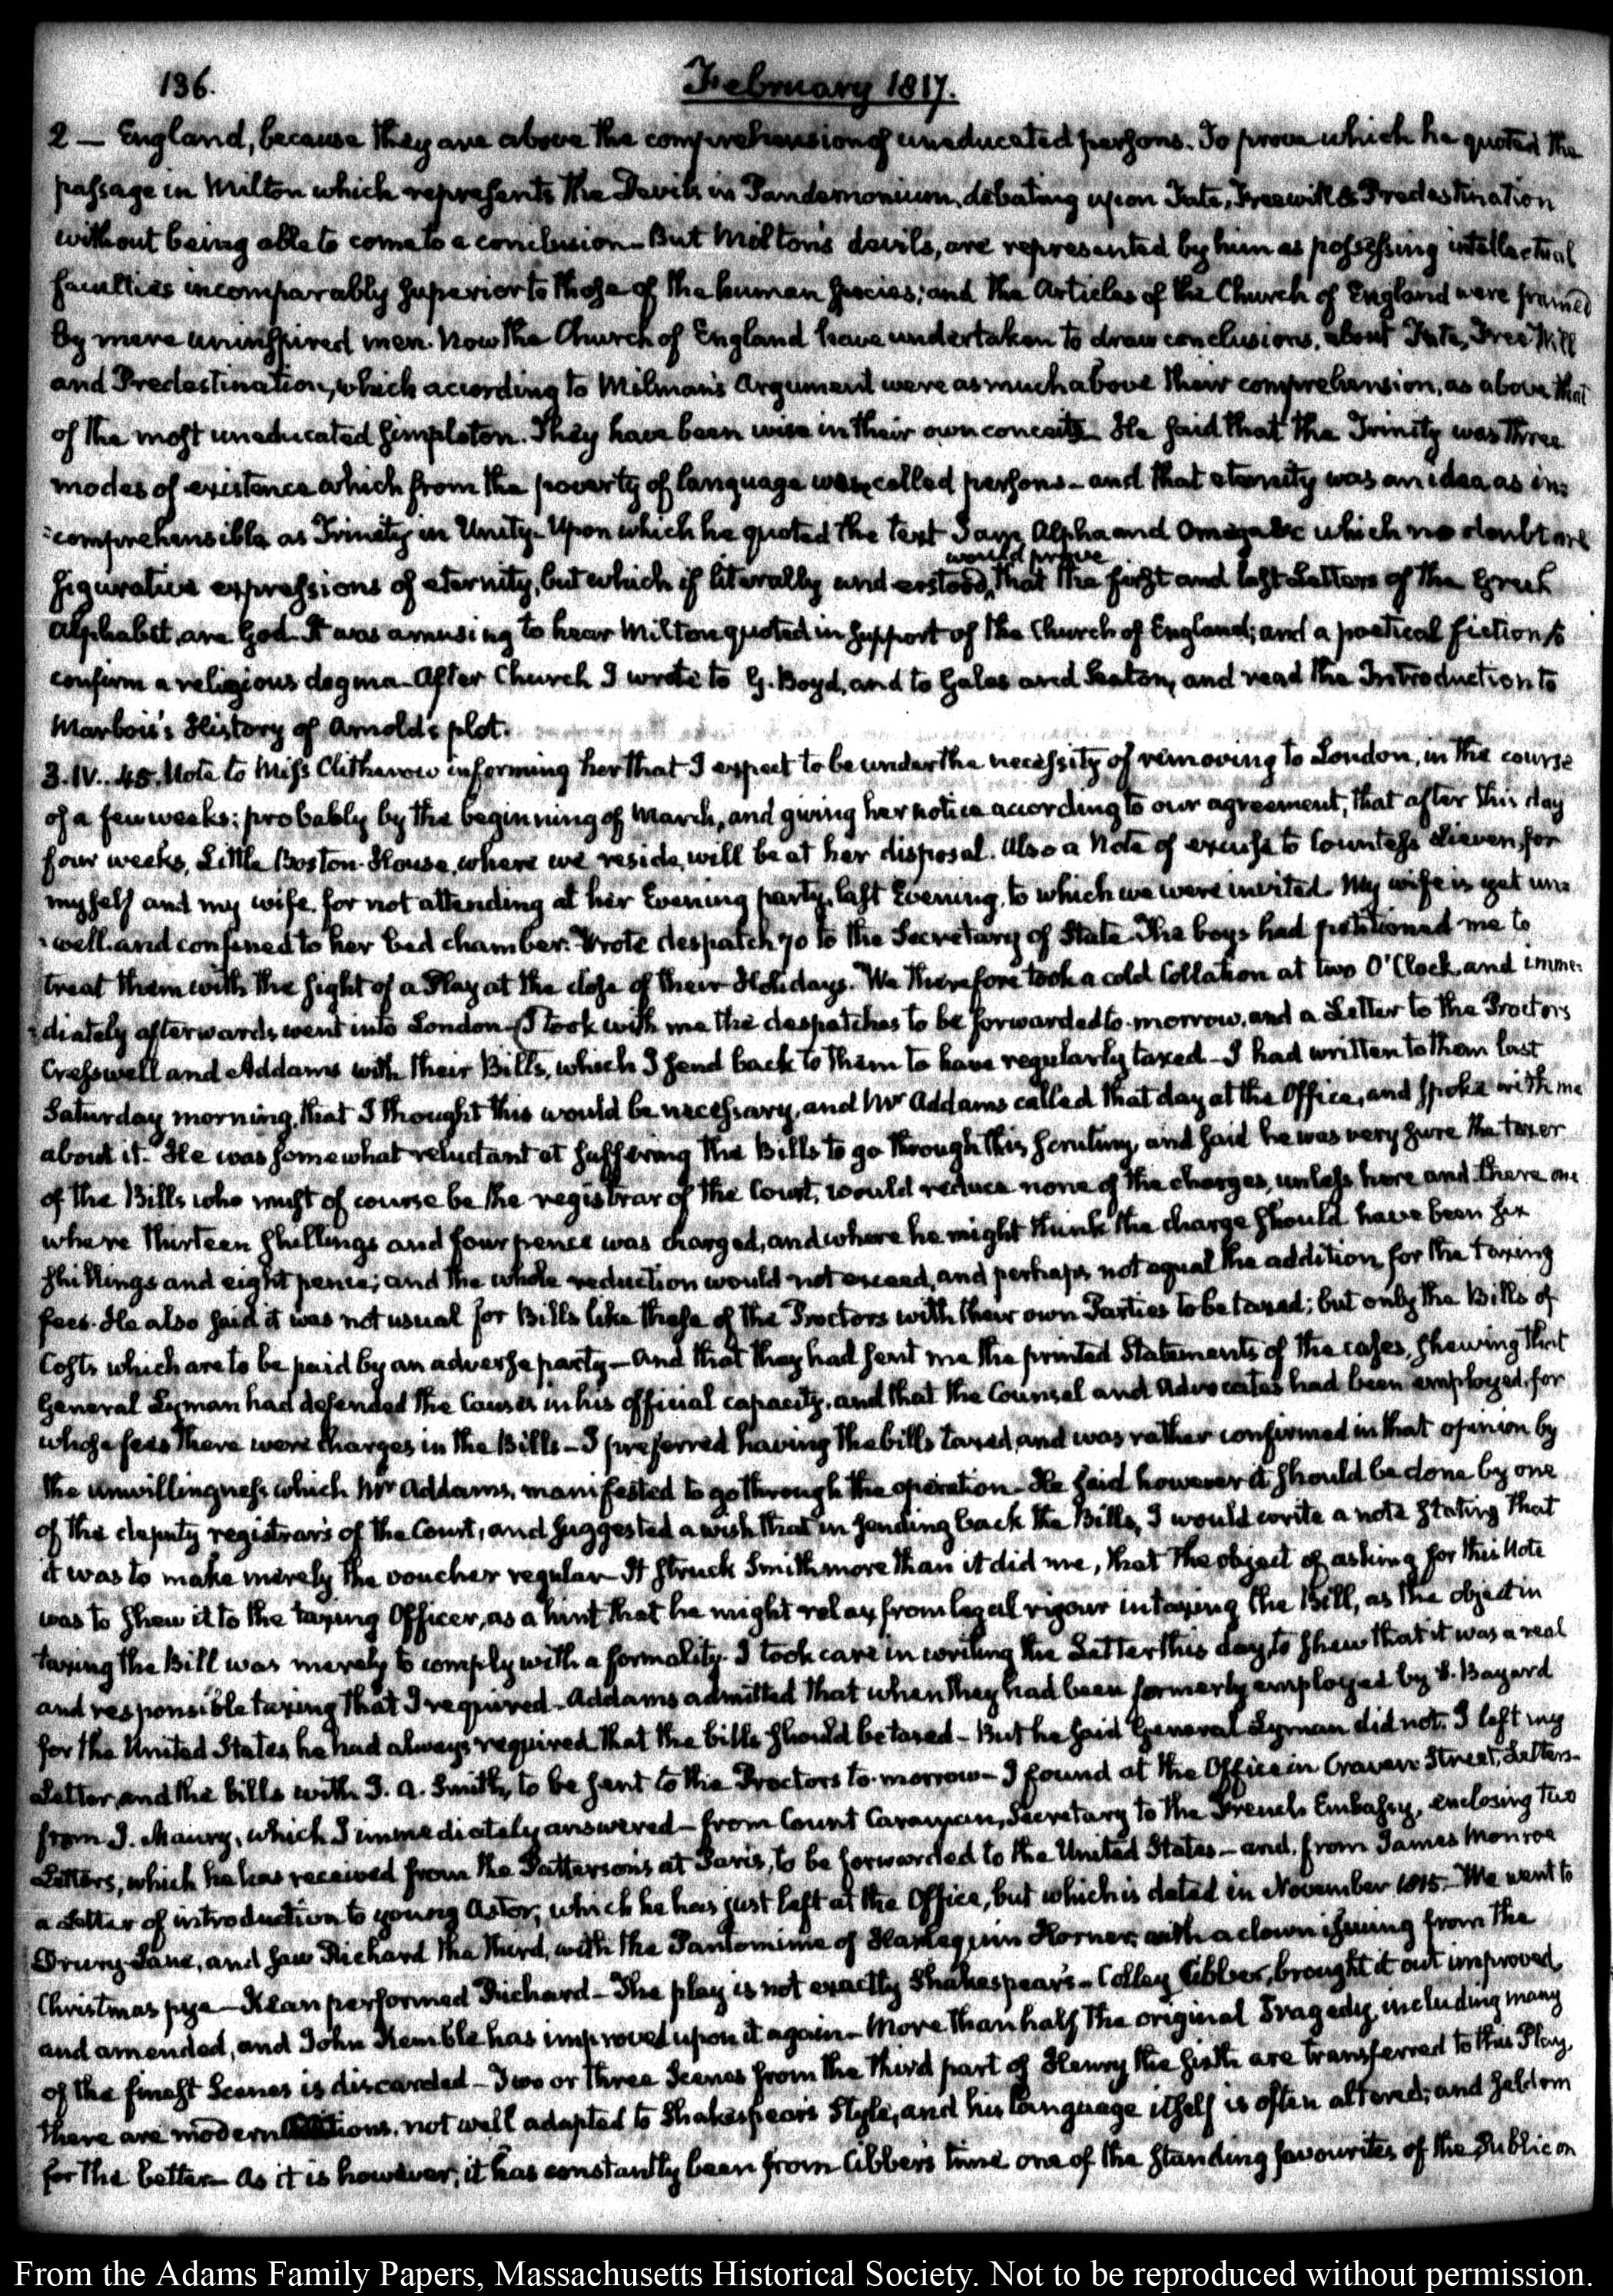 136.
February 1817.
2 — England, because they are above the comprehension of uneducated persons. To prove which he quoted the
passage in Milton which represents the Devils in Pandemonium, debating upon Fate, Freewill & Predestination
without being able to come to a conclusion — But Milton's devils, are represented by him as possessing intellectual
faculties incomparably superior to those of the human species; and the Articles of the Church of England were framed
by mere uninspired men. Now the Church of England have undertaken to draw conclusions, about Fate, Free Will
and Predestination, which according to Milman's Argument were as much above their comprehension, as above that
of the most uneducated simpleton. They have been wise in their own conceits — He said that the Trinity was three
modes of existence which from the poverty of language were called persons — and that eternity was an idea, as in=
=comprehensible as Trinity in Unity — Upon which he quoted the text I am Alpha and Omega &c which no doubt are
would prove
figurative expressions of eternity, but which if literally understood, that the first and last Letters of the Greek
Alphabet, are God. It was amusing to hear Milton quoted in support of the Church of England; and a poetical fiction to
confirm a religious dogma — After Church I wrote to G. Boyd, and to Gales and Seaton, and read the Introduction to
Marbois's History of Arnold's plot.
3. IV.. 45. Note to Miss Clitherow informing her that I expect to be under the necessity of removing to London, in the course
of a few weeks; probably by the beginning of March, and giving her notice according to our agreement, that after this day
four weeks, Little Boston House, where we reside, will be at her disposal. Also a Note of excuse to Countess Lieven, for
myself and my wife, for not attending at her Evening party, last Evening, to which we were invited. My wife is yet un=
=well and confined to her bed chamber. Wrote despatch 70 to the Secretary of State. The boys had petitioned me to
treat them with the sight of a Play at the close of their Holidays. We therefore took a cold Collation at two O'Clock, and imme=
=diately afterwards went into London — I took with me the despatches to be forwarded to-morrow, and a Letter to the Proctors
Cresswell and Addams with their Bills, which I send back to them to have regularly taxed — I had written to them last
Saturday morning, that I thought this would be necessary, and Mr Addams called that day at the Office, and spoke with me
about it. He was somewhat reluctant at suffering the Bills to go through this scrutiny, and said he was very sure the taxer
of the Bills who must of course be the registrar of the Court, would reduce none of the charges, unless here and there one
where thirteen shillings and four pence was charged, and where he might think the charge should have been six
shillings and eight pence; and the whole reduction would not exceed, and perhaps not equal the addition, for the taxing
fees. He also said it was not usual for Bills like these of the Proctors with their own Parties to be taxed; but only the Bills of
Costs which are to be paid by an adverse party — And that they had sent me the printed Statements of the cases, shewing that
General Lyman had defended the Causes in his official capacity, and that the Counsel and Advocates had been employed, for
whose fees there were charges in the Bills — I preferred having the bills taxed, and was rather confirmed in that opinion by
the unwillingness which Mr Addams, manifested to go through the operation — He said however it should be done by one
of the deputy registrars of the Court, and suggested a wish that in sending back the Bills, I would write a note stating that
it was to make merely the voucher regular — It struck Smith more than it did me, that the object of asking for this Note
was to shew it to the taxing Officer, as a hint that he might relax from legal rigour in taxing the Bill, as the object in
taxing the Bill was merely to comply with a formality. I took care in writing the Letter this day, to shew that it was a real
and responsible taxing that I required — Addams admitted that when they had been formerly employed by S. Bayard
for the United States, he had always required that the bills should be taxed — But he said General Lyman did not. I left my
Letter, and the bills with J. A. Smith, to be sent to the Proctors to-morrow — I found at the Office in Craven Street, Letters —
from J. Maury, which I immediately answered — from Count Caraman, Secretary to the French Embassy, enclosing two
Letters, which he has received from the Pattersons at Paris, to be forwarded to the United States — and from James Monroe
a Letter of introduction to young Astor, which he has just left at the Office, but which is dated in November 1815. — We went to
Drury-Lane, and saw Richard the Third, with the Pantomime of Harlequin Horner, with a clown issuing from the
Christmas pye — Kean performed Richard — The play is not exactly Shakespear's — Colley Cibber, brought it out improved,
and amended, and John Kemble has improved upon it again — More than half the original Tragedy, including many
of the finest Scenes is discarded — Two or three Scenes from the third part of Henry the sixth are transferred to this Play,
there are modern additions, not well adapted to Shakespear's Style, and his language itself is often altered; and seldom
for the better — As it is however, it has constantly been from Cibber's time one of the standing favourites of the Public on
From the Adams Family Papers, Massachusetts Historical Society. Not to be reproduced without permission.